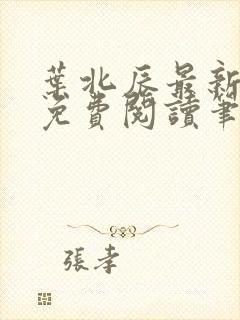 葉北辰最新
免費閱讀筆
張孝